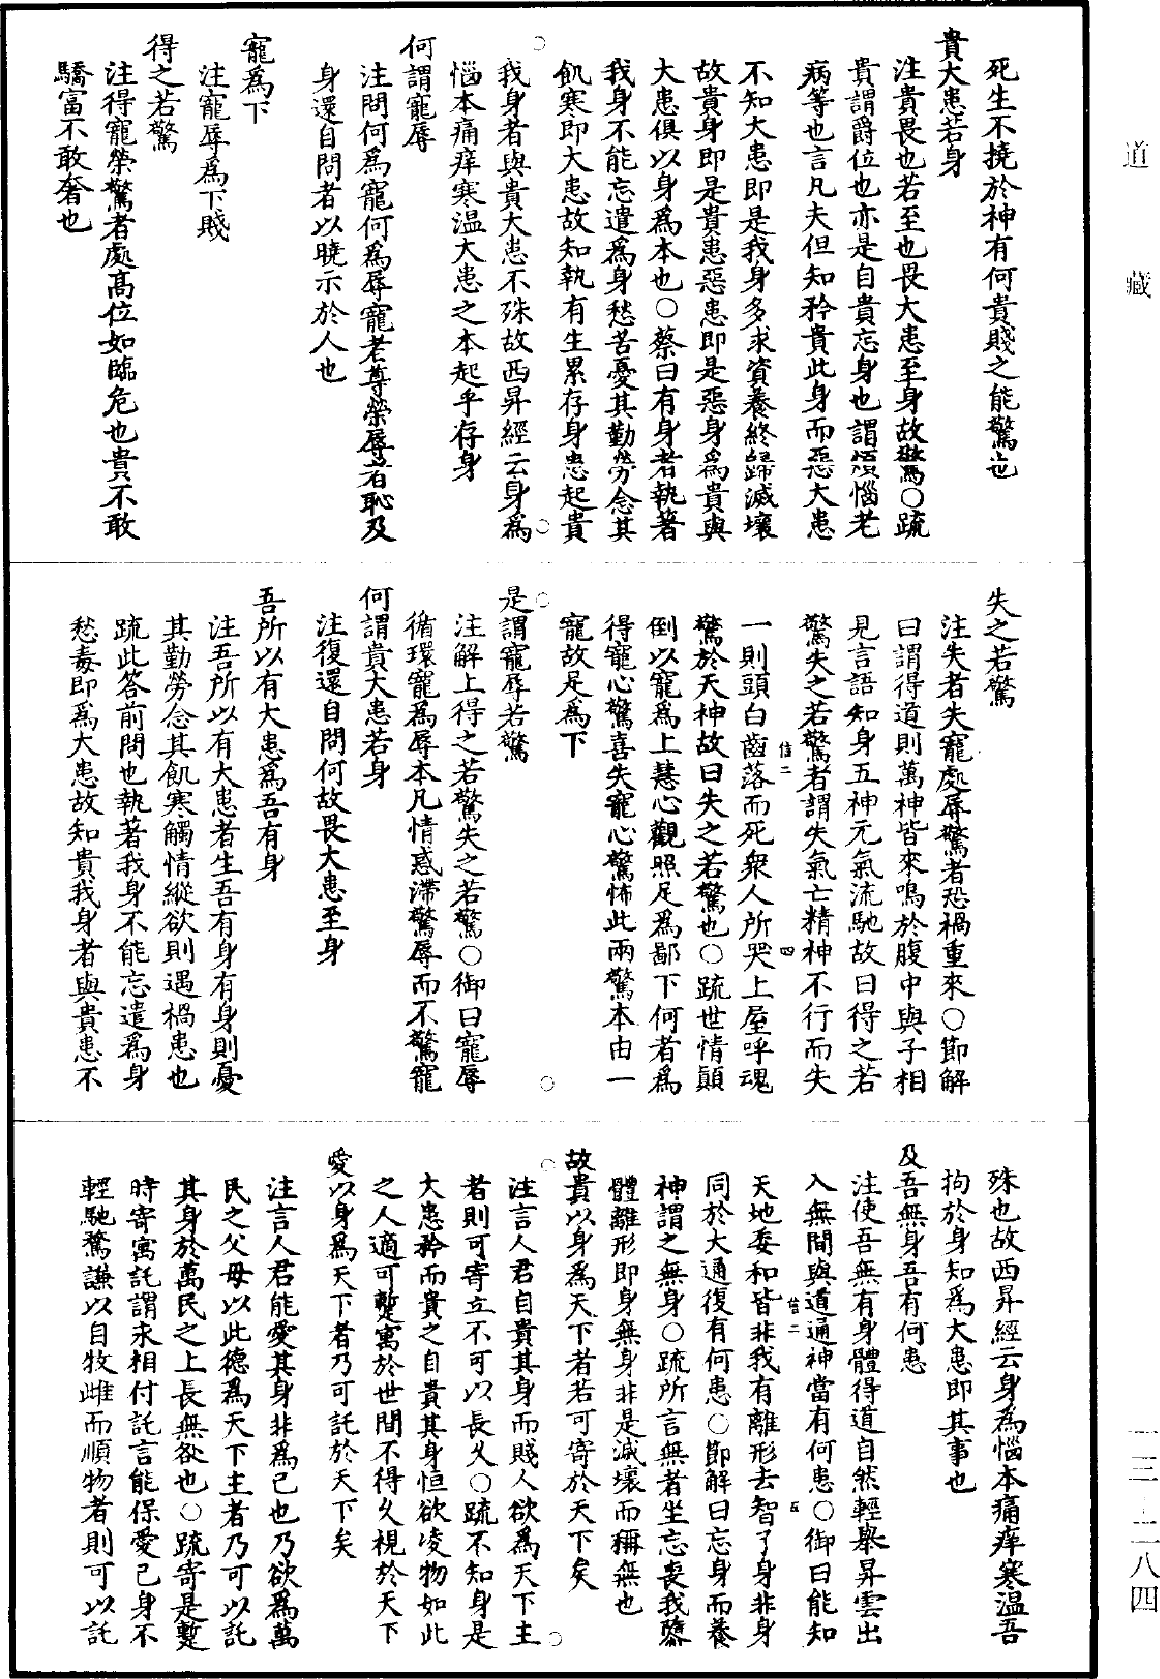 道藏
死生不撓於神有何貴賤之能驚也
貴大患若身
注貴畏也若至也畏大患至身故驚○疏
貴謂爵位也亦是自貴忘身也謂煩惱老
病等也言凡夫但知矜貴此身而惡大患
不知大患即是我身多求資養終歸滅壞
故貴身即是貴患惡患即是惡身為貴與
大患俱以身為本也○蔡曰有身者執著
我身不能忘遣為身愁苦憂其勤勞念其
飢寒即大患故知執有生累存身患起貴
我身者與貴大患不殊故西昇經云身為
惱本痛痒寒温大患之本起乎存身
何謂寵辱
注問何為寵何為辱寵者尊榮辱者恥及
身還自問者以曉示於人也
寵為下
注寵辱為下賤
得之若驚
注得寵榮驚者處高位如臨危也貴不敢
驕富不敢奢也
失之若驚
注失者失寵處辱驚者恐禍重來○節解
曰謂得道則萬神皆來鳴於腹中與子相
見言語知身五神元氣流馳故曰得之若
驚失之若驚者謂失氣亡精神不行而失
信二 四
一則頭白齒落而死衆人所哭上屋呼魂
驚於天神故曰失之若驚也○疏世情顛
倒以寵為上慧心觀照足為鄙下何者為
得寵心驚喜失寵心驚怖此兩驚本由一
寵故足為下
是謂寵辱若驚
注解上得之若驚失之若驚○御曰寵辱
循環寵為辱本凡情惑滯驚辱而不驚寵
何謂貴大患若身
注復還自問何故畏大患至身
吾所以有大患為吾有身
注吾所以有大患者生吾有身有身則憂
其勤勞念其飢寒觸情縱欲則遇禍患也
疏此答前問也執著我身不能忘遣為身
愁毒即為大患故知貴我身者與貴患不
殊也故西昇經云身為惱本痛痒寒温吾
拘於身知為大患即其事也
及吾無身吾有何患
注使吾無有身體得道自然輕舉昇雲出
入無間與道通神當有何患○御曰能知
信二 五
天地委和皆非我有離形去智了身非身
同於大通復有何患○節解曰忘身而養
神謂之無身○疏所言無者坐忘喪我隳
體離形即身無身非是滅壞而稱無也
故貴以身為天下者若可寄於天下矣
注言人君自貴其身而賤人欲為天下主
者則可寄立不可以長久○疏不知身是
大患矜而貴之自貴其身恒欲凌物如此
之人適可蹔寓於世間不得久視於天下
愛以身為天下者乃可託於天下矣
注言人君能愛其身非為己也乃欲為萬
民之父母以此德為天下主者乃可以託
其身於萬民之上長無欲也○疏寄是蹔
時寄寓託謂永相付託言能保愛己身不
輕馳騖謙以自牧雌而順物者則可以託
一三—二八四